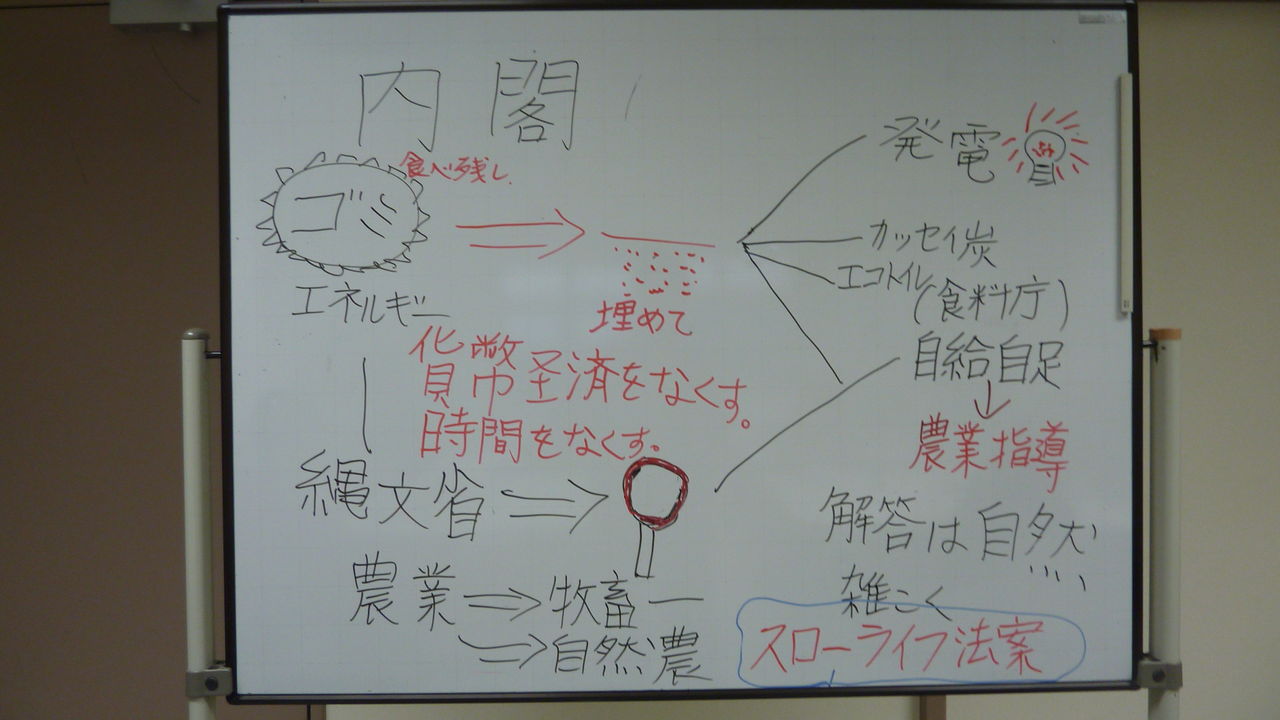 内閣
食べ残し
ゴミ
エネルギー
埋めて
発電
カッセイ炭
エコトイレ
(食料庁)
自給自足
農業指導
貨幣経済をなくす。
時間をなくす。
縄文省
解答は自然
農業
牧畜
自然農
雑こく
スローライフ法案